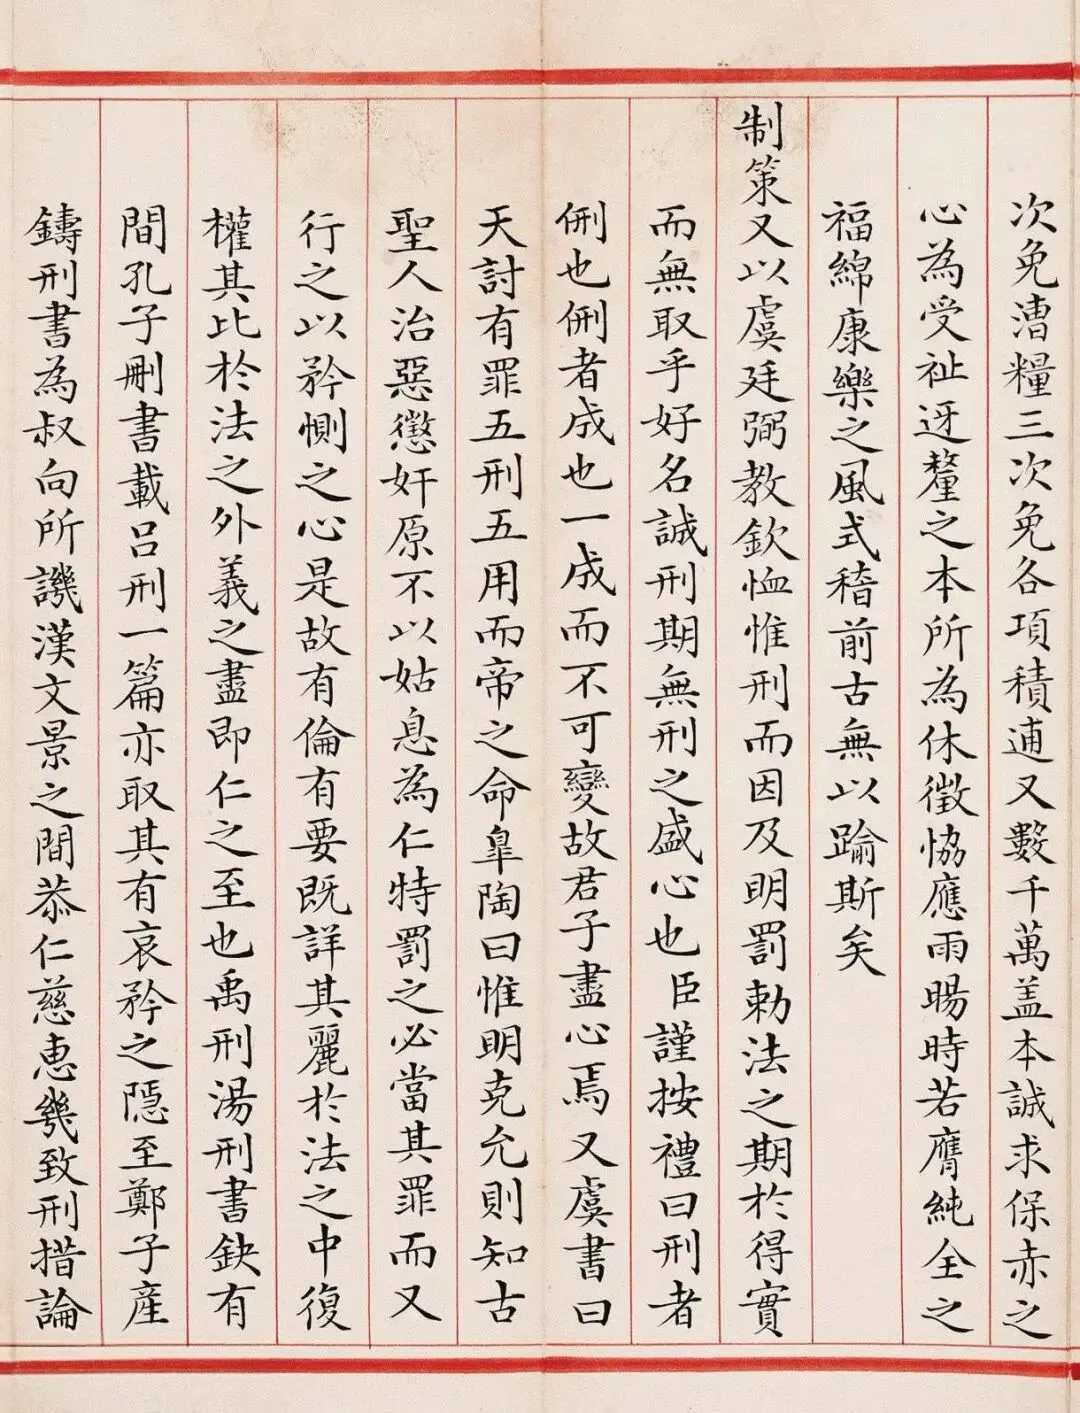 次免漕糧三次免各項積逋又數千萬盖本誠求保赤之
心為受祉迓釐之本所為休徵恊應雨暘時若膺純全之
福綿康樂之風式稽前古無以踰斯矣
制策又以虞廷弼教欽恤惟刑而因及明罰勅法之期於得實
而無取乎好名誠刑期無刑之盛心也臣謹按禮曰刑者
侀也侀者成也一成而不可變故君子盡心焉又虞書曰
天討有罪五刑五用而帝之命臯陶曰惟明克允則知古
聖人治惡懲奸原不以姑息為仁特罰之必當其罪而又
行之以矜惻之心是故有倫有要既詳其麗於法之中復
權其比於法之外義之盡即仁之至也禹刑湯刑書缺有
間孔子刪書載呂刑一篇亦取其有哀矜之隱至鄭子產
鑄刑書為叔向所譏漢文景之間恭仁慈惠幾致刑措論